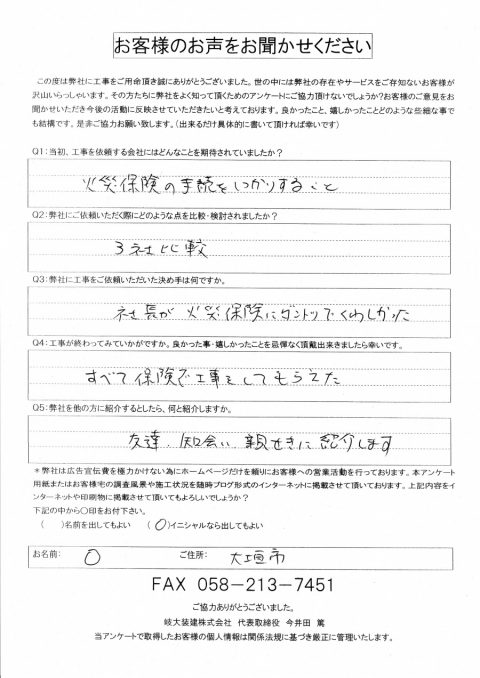 お客様のお声をお聞かせください
この度は弊社に工事をご用命頂き誠にありがとうございました。世の中には弊社の存在やサービスをご存知ないお客様が
沢山いらっしゃいます。その方たちに弊社をよく知って頂くためのアンケートにご協力頂けないでしょうか?お客様のご意見をお
聞かせいただき今後の活動に反映させていただきたいと考えております。良かったこと、嬉しかったことどのような些細な事で
も結構です。是非ご協力お願い致します。(出来るだけ具体的に書いて頂ければ幸いです)
Q1:当初、工事を依頼する会社にはどんなことを期待されていましたか?
火災保険の手続をしっかりすること
Q2:弊社にご依頼いただく際にどのような点を比較・検討されましたか?
3社比較
Q3:弊社に工事をご依頼いただいた決め手は何ですか。
社長が火災保険にダントツでくわしかった
Q4:工事が終わってみていかがですか。良かった事・嬉しかったことを忌憚なく頂戴出来きましたら幸いです。
すべて保険で工事をしてもらえた
Q5:弊社を他の方に紹介するとしたら、何と紹介しますか。
友達、知合い、親せきに紹介します
*弊社は広告宣伝費を極力かけない為にホームページだけを頼りにお客様への営業活動を行っております。本アンケート
用紙またはお客様宅の調査風景や施工状況を随時ブログ形式のインターネットに掲載させて頂いております。上記内容をイ
ンターネットや印刷物に掲載させて頂いてもよろしいでしょうか?
下記の中から〇印をお付下さい。
( )名前を出してもよい (〇)イニシャルなら出してもよい
お名前: O ご住所: 大垣市
FAX 058-213-7451
ご協力ありがとうございました。
岐大装建株式会社 代表取締役 今井田 篤
当アンケートで取得したお客様の個人情報は関係法規に基づき厳正に管理いたします。